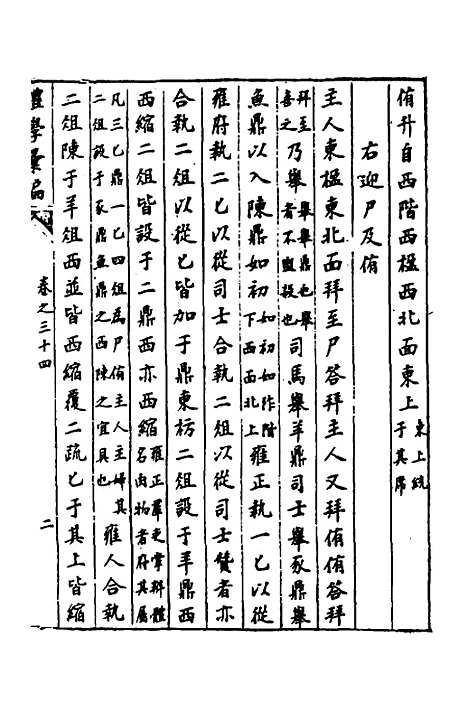 侑升自西階西楹西北面東上東上統于其席
右迎尸及侑
主人東楹東北面拜至尸答拜主人又拜侑侑答拜
拜至喜之乃舉舉舉鼎也舉者不盥殺也司馬舉羊鼎司士舉豕鼎舉
魚鼎以入陳鼎如初如初如阼階下西面北上雍正執一匕以從
雍府執二匕以從司士合執二俎以從司士贊者亦
合執二俎以從匕皆加于鼎東枋二俎設于羊鼎西
西縮二俎皆設于二鼎西亦西縮雍正羣吏掌辨體名肉物者府其屬
凡三匕鼎一匕四俎為尸侑主人主婦其二俎設于豕鼎魚鼎之西陳之宜具也雍人合執
二俎陳于羊俎西並皆西縮覆二疏匕于其上皆縮
禮學彙編
卷之三十四
二